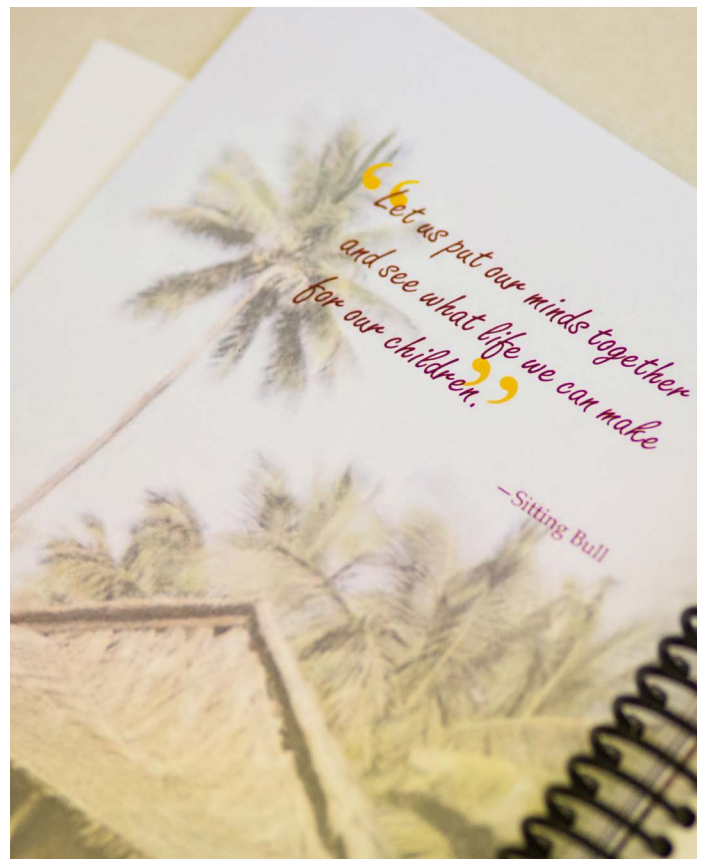 “Let us put our minds together
and see what life we can make
for our children.”
– Sitting Bull